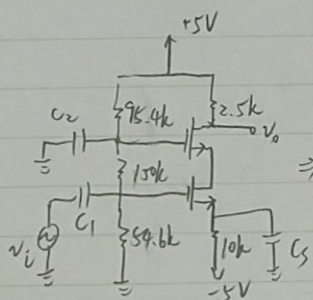 +5V
C2
95.4k
2.5k
Vo
150k
C1
Vi
54.6k
10k
Cs
-5V
⇒